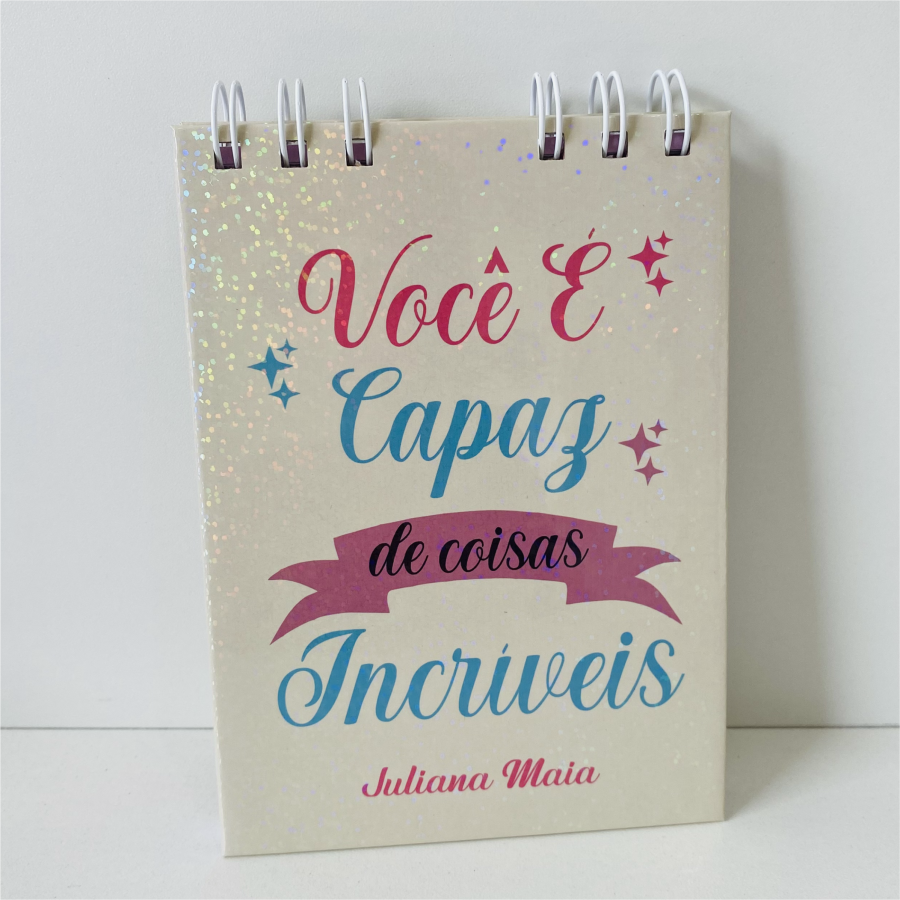 Você É
Capaz
de coisas
Incríveis
Juliana Maia